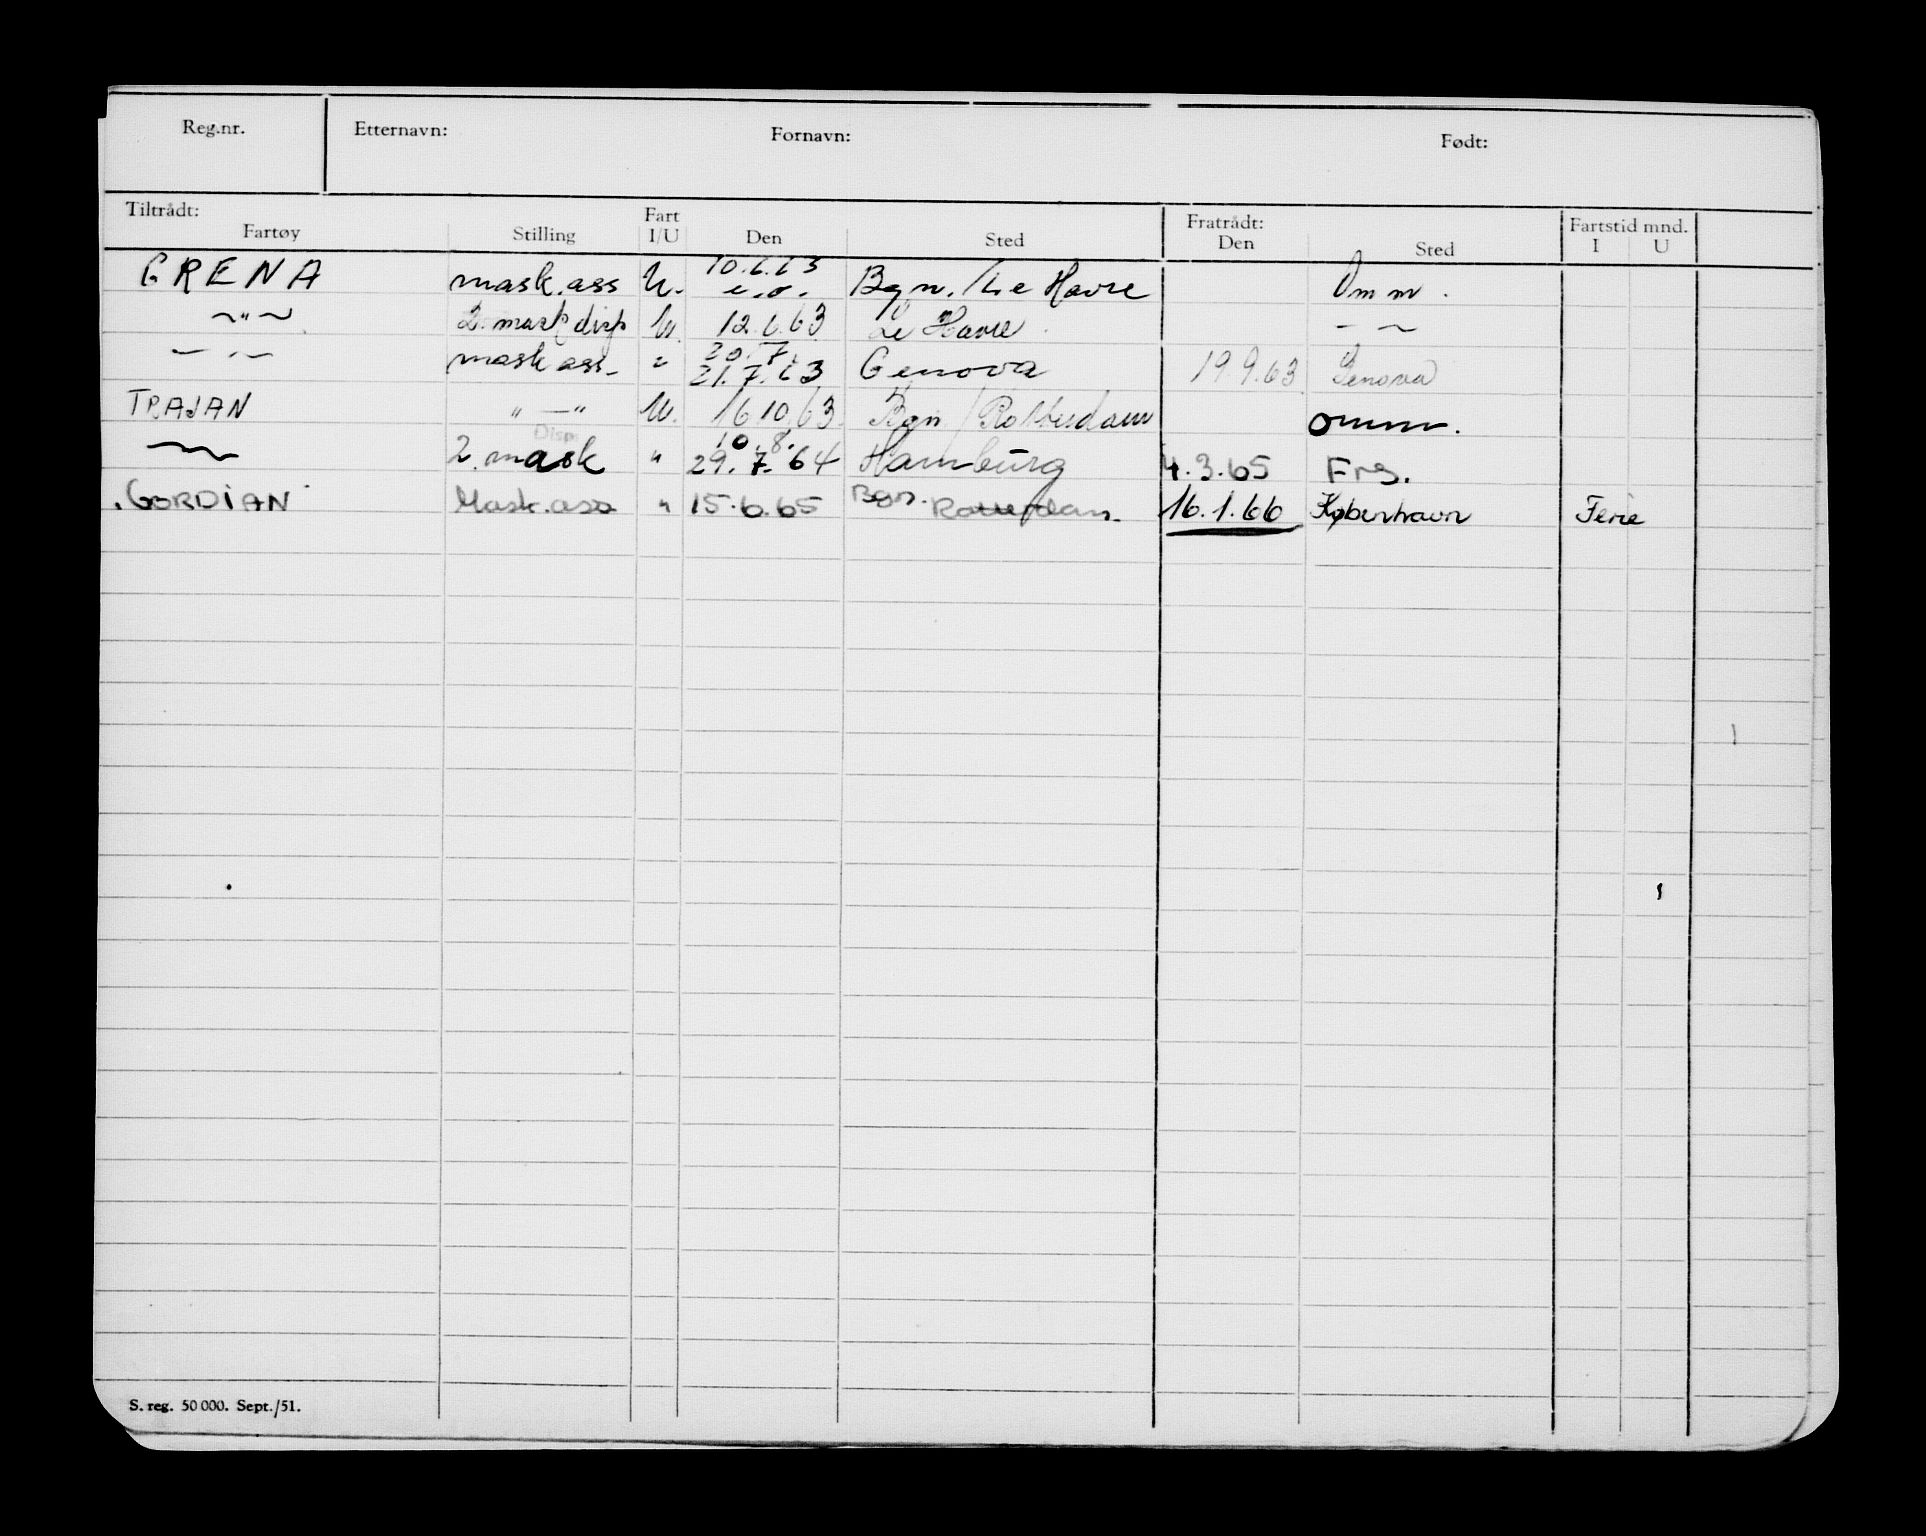 Reg.nr. Etternavn: Fornavn: Født:
Tiltrådt: Fart Fratrådt: Fartstid mnd.
Fartøy Stilling I/U Den Sted Den Sted I U
GRENA mask.ass U. 10.6.63 Bgn./Le Havre Omm.
~"~ 2.mask disp U. 12.6.63 Le Havre — ~
— " — mask ass. " 20.7. 21.7.63 Genova 19.9.63 Genova
TRAJAN " — " U. 16.10.63. Bgn/Rotterdam omm.
— 2. mask Disp " 10.8. 29.7.64 Hamburg 4.3.65 Frs.
GORDIAN Mask.ass " 15.6.65 Bgn. Rotterdam. 16.1.66 København Ferie
S. reg. 50 000. Sept./51.